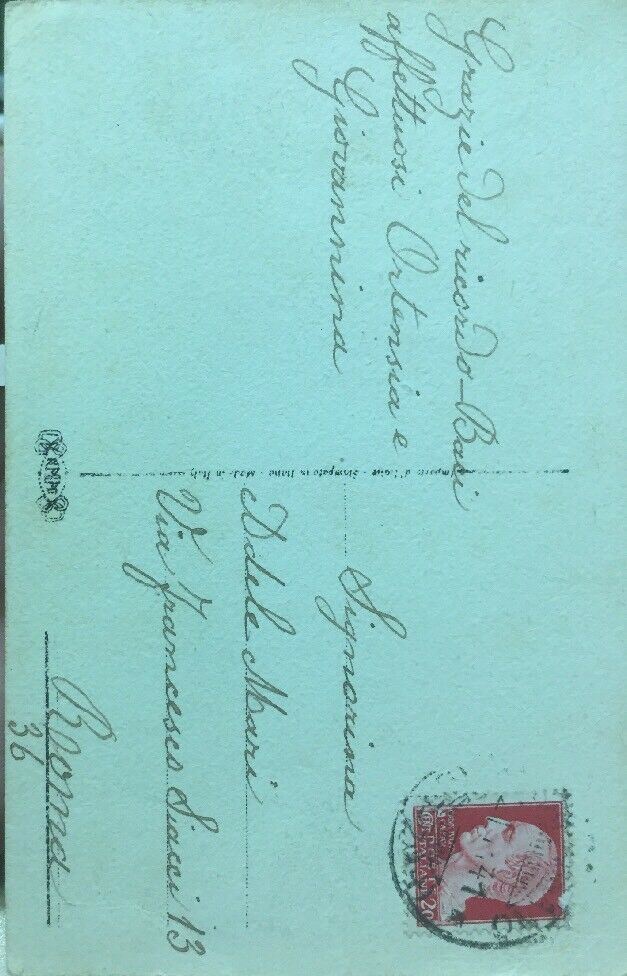 Grazie del ricordo - Baci
affettuosi Ortensia e
Giovannina
Signorina
Adele Mari
Via Francesco Siacci 13
Roma
36
Stampato in Italia - Made in Italy
POSTE
ITALIANE
20
47